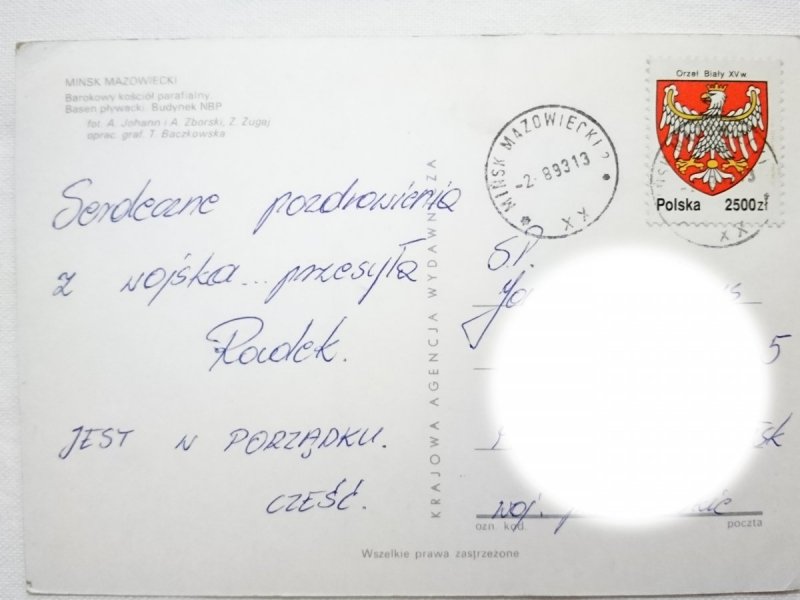 MINSK MAZOWIECKI
Barokowy kościół parafialny
Basen pływacki. Budynek NBP
fot. A. Johann i A. Zborski, Z. Zugaj
oprac. graf. T. Baczkowska
Serdeczne pozdrowienia
z wojska... przesyła
Radek.
JEST W PORZĄDKU.
CZEŚĆ.
KRAJOWA AGENCJA WYDAWNICZA
MIŃSK MAZOWIECKI 2
-2.-8 93 13
XX
Orzeł Biały XV w.
Polska 2500 zł
XX
5
woj.
ozn. kod. poczta
Wszelkie prawa zastrzeżone